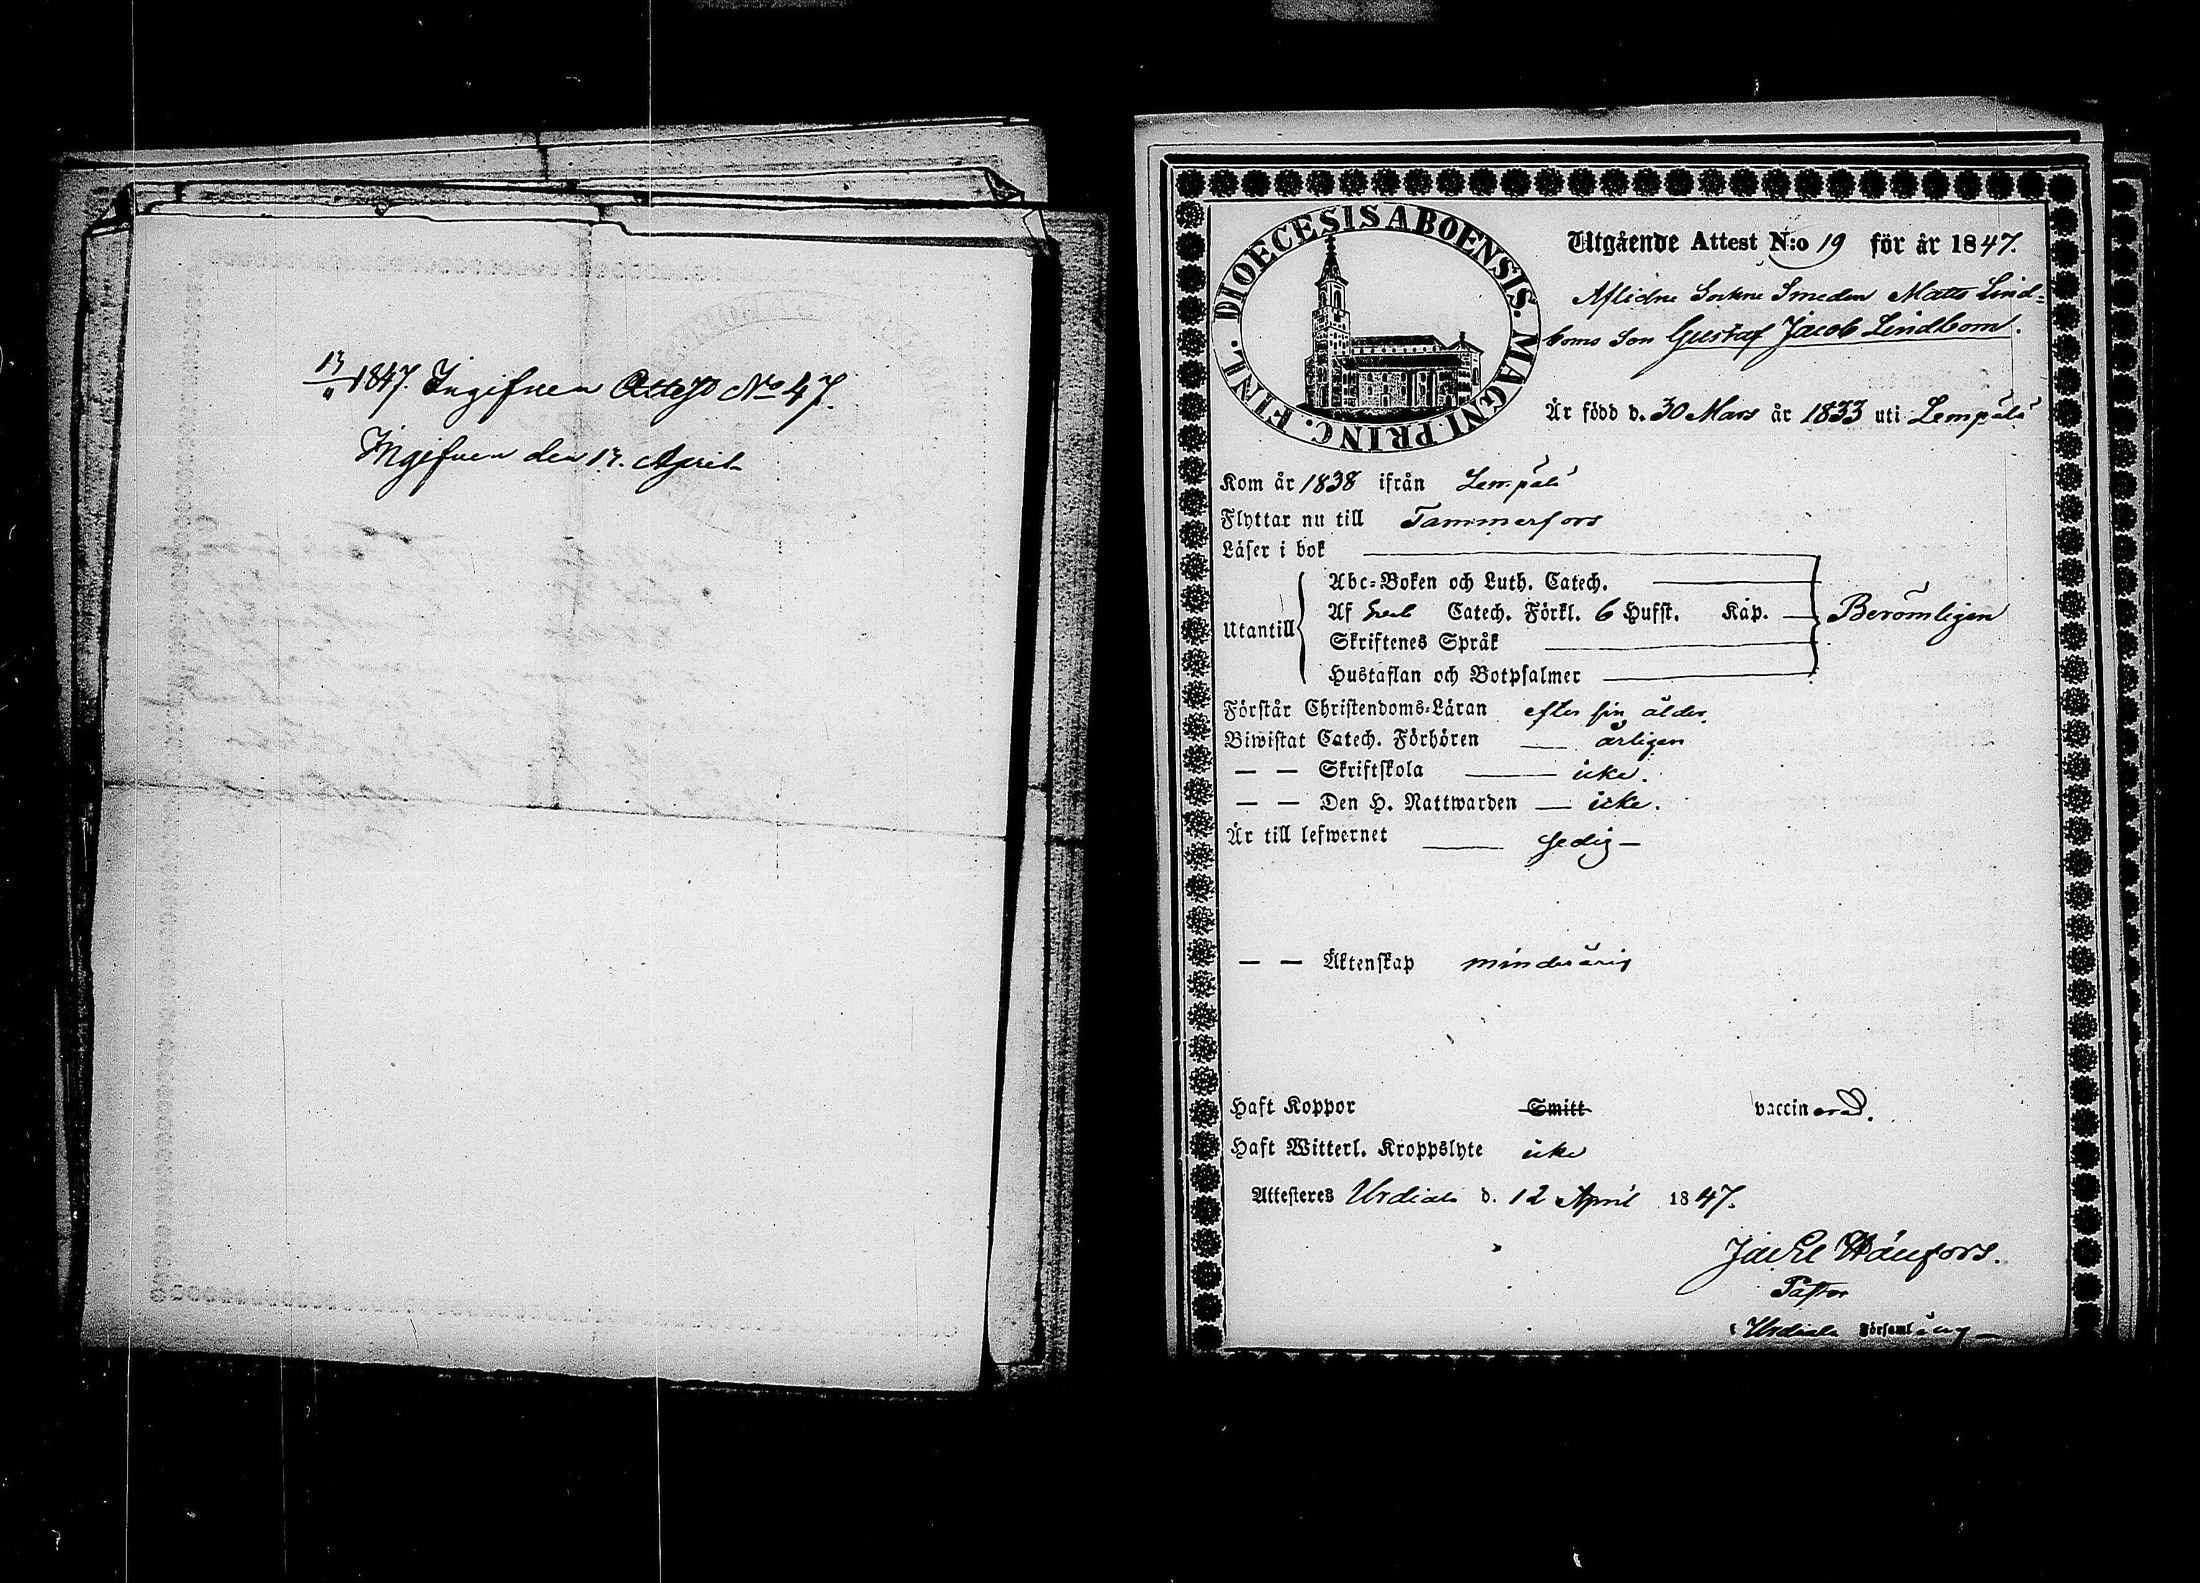 13/4 1847. Ingifven Attest No 47.
Ingifven den 13. April
DIOECESIS ABOENSIS. MAGNI PRINC. FINL.
Utgående Attest N:o 19 för år 1847.
Aflidne Sockne Smeden Matts Lind-
boms Son Gustaf Jacob Lindbom.
Är född d. 30 Mars år 1833 uti Lempälä
Kom år 1838 ifrån Lempälä
Flyttar nu till Tammerfors
Läser i bok
Abc-Boken och Luth. Catech.
Utantill Af Sveb Catech. Förkl. 6 Hufst. Kap. Berömligen
Skriftenes Språk
Hustaflan och Botpsalmer
Förstår Christendoms-Läran efter sin ålder.
Biwistat Catech. Förhören — årligen
— — Skriftskola — icke.
— — Den H. Nattwarden — icke.
Är till lefwernet — sedig —
— — Äktenskap minderårig
Haft Koppor Smitt vaccinerad.
Haft Witterl. Kroppslyte icke
Attesteres Urdiala d. 12 April 1847.
Pastor
i Urdiala Församling —